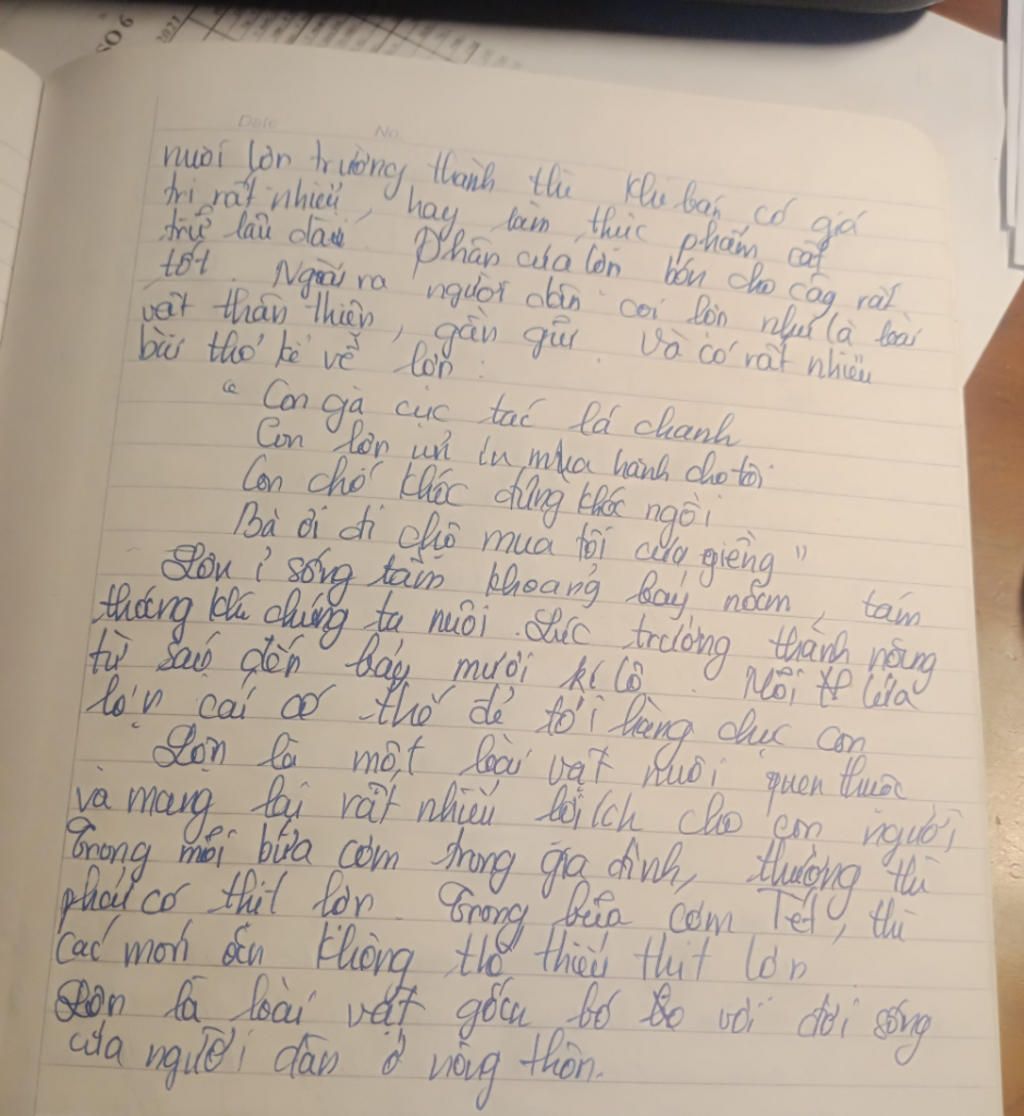 SO 6
2021
Date No.
nuôi lớn trưởng thành thì khi bán có giá
trị rất nhiều, hay làm thực phẩm cất
trữ lâu dài. Phân của lợn bón cho cây rất
tốt. Ngoài ra người dân coi lợn như là loài
vật thân thiện, gần gũi. Và có rất nhiều
bài thơ kể về lợn:
“ Con gà cục tác lá chanh
Con lợn ủn ỉn mua hành cho tôi
Con chó khóc đứng khóc ngồi
Bà ơi đi chợ mua tôi của giềng ”
Lợn ỉ sống tầm khoảng bảy năm, tám
tháng khi chúng ta nuôi. Lúc trưởng thành nặng
từ sáu đến bảy mươi kí lô. Mỗi lứa
lợn cái có thể đẻ tới hàng chục con
Lợn là một loài vật nuôi quen thuộc
và mang lại rất nhiều lợi ích cho con người
Trong mỗi bữa cơm trong gia đình, thường thì
phải có thịt lợn. Trong bữa cơm Tết, thì
các món ăn không thể thiếu thịt lợn
Lợn là loài vật gắn bó với đời sống
của người dân ở nông thôn.